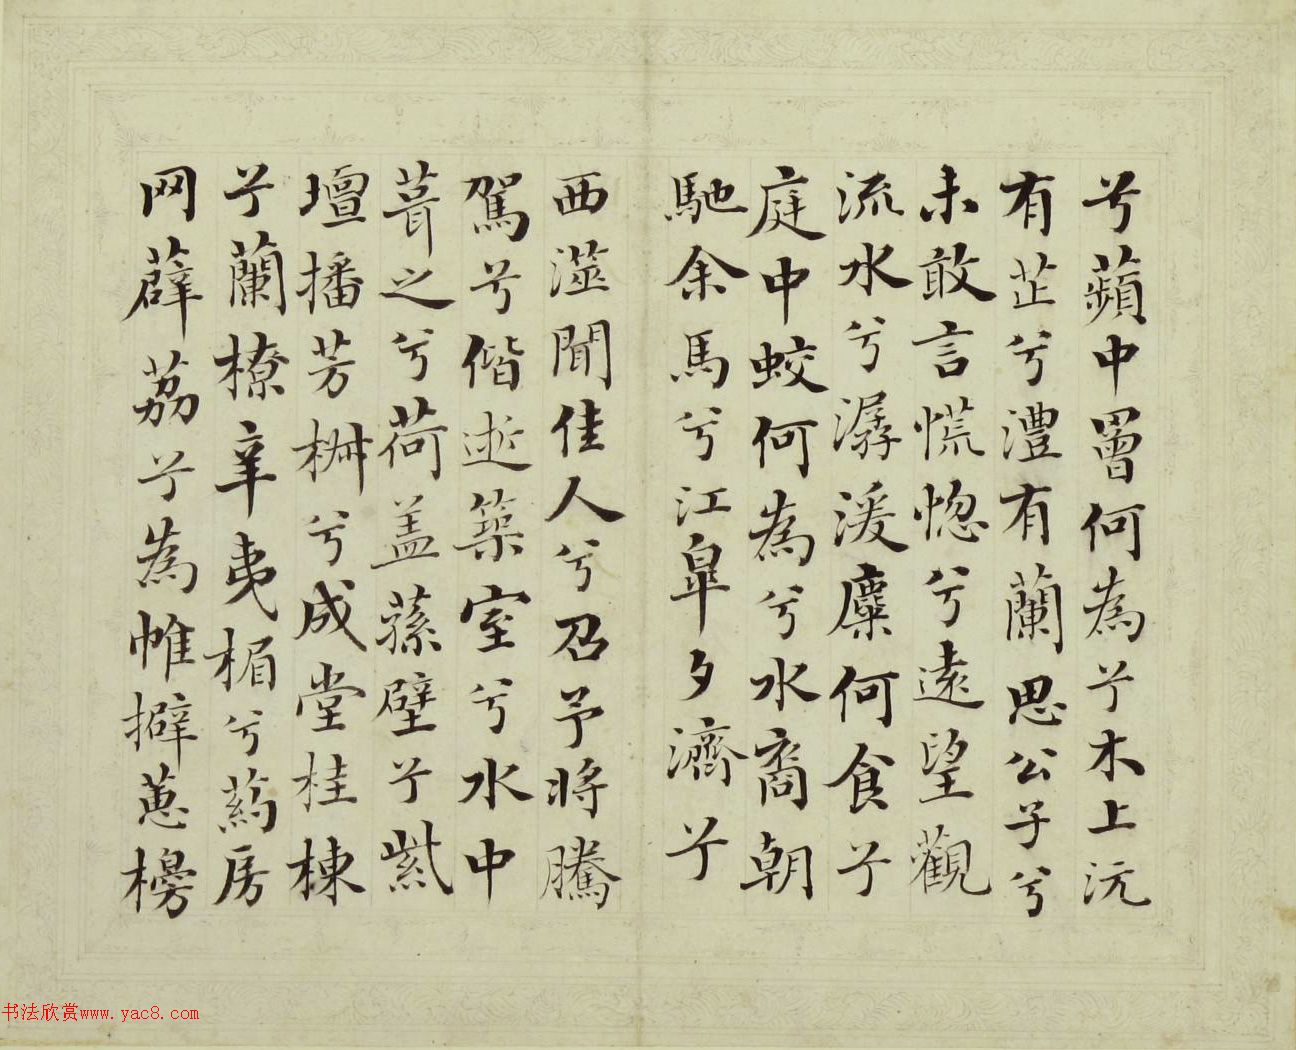 兮蘋中罾何為兮木上沅
有芷兮澧有蘭思公子兮
未敢言慌惚兮遠望觀
流水兮潺湲麋何食兮
庭中蛟何為兮水裔朝
馳余馬兮江皋夕濟兮
西澨聞佳人兮召予將騰
駕兮偕逝築室兮水中
葺之兮荷盖蓀壁兮紫
壇播芳椒兮成堂桂棟
兮蘭橑辛夷楣兮葯房
网薜荔兮為帷擗蕙櫋
书法欣赏www.yac8.com